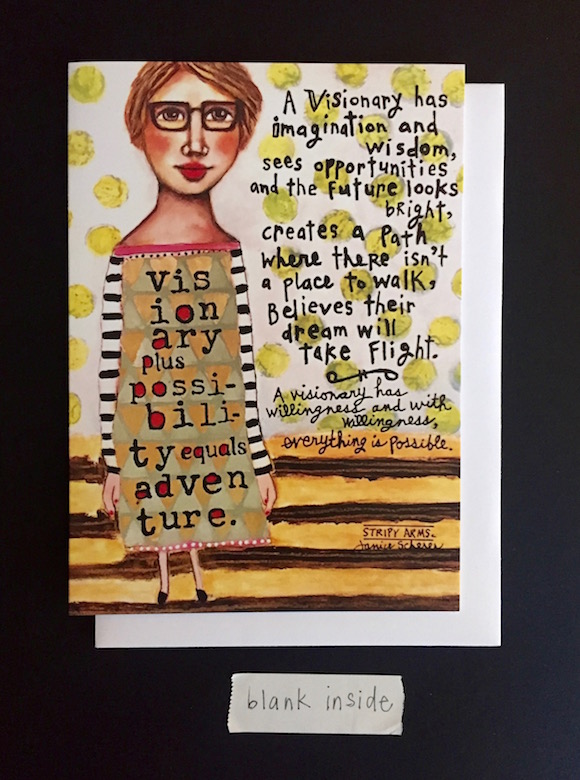 A Visionary has
imagination and
wisdom,
sees opportunities
and the future looks
bright,
creates a path
where there isn't
a place to walk,
Believes their
dream will
take flight.
A visionary has
willingness and with
willingness,
everything is possible.
vis
ion
ary
plus
possi-
bili-
ty equals
adven
ture.
STRIPY ARMS.
Janice Scherer
blank inside